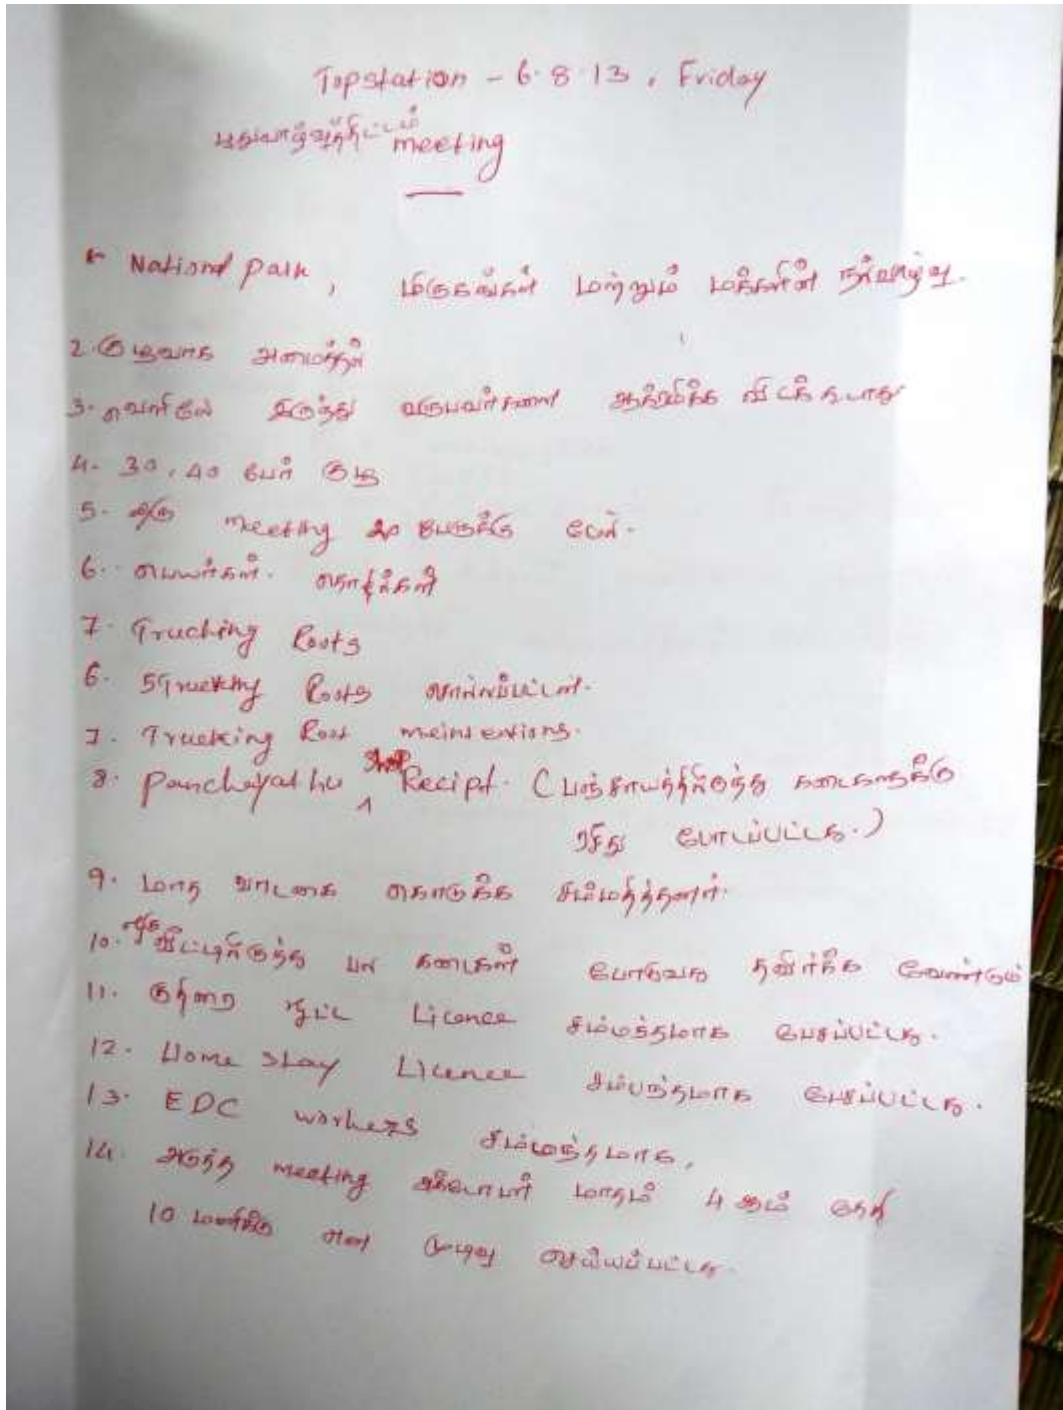 Topstation - 6.8.13, Friday
புதுவாழ்வுத்திட்டம் meeting
National Park, மிருகங்கள் மற்றும் மக்களின் நல்வாழ்வு.
2. குழுவாக அமைத்தல்
3. வெளியிலே இருந்து வருபவர்களை ஆக்ரமிக்க விடக்கூடாது
4. 30, 40 பேர் குழு
5. meeting 20 பேருக்கு மேல்.
6. பெயர்கள்.
7. Trucking Roots
6. 5 Trucking Roots சொல்லப்பட்டன.
7. Trucking Root meintentions.
8. Panchayathu Shop Recipt. (பஞ்சாயத்திலிருந்து கடைகளுக்கு
ரசிது போடப்பட்டது.)
9. மாத வாடகை கொடுக்க சம்மதித்தனர்.
10. ஒரு வீட்டிலிருந்து பல கடைகள் போடுவது தவிர்க்க வேண்டும்
11. குதிரை ஓட்ட Licence சம்மந்தமாக பேசப்பட்டது.
12. Home Stay Licence சம்பந்தமாக பேசப்பட்டது.
13. EDC workers சம்மந்தமாக,
14. அடுத்த meeting அக்டோபர் மாதம் 4 ஆம் தேதி
10 மணிக்கு என முடிவு செய்யப்பட்டது.